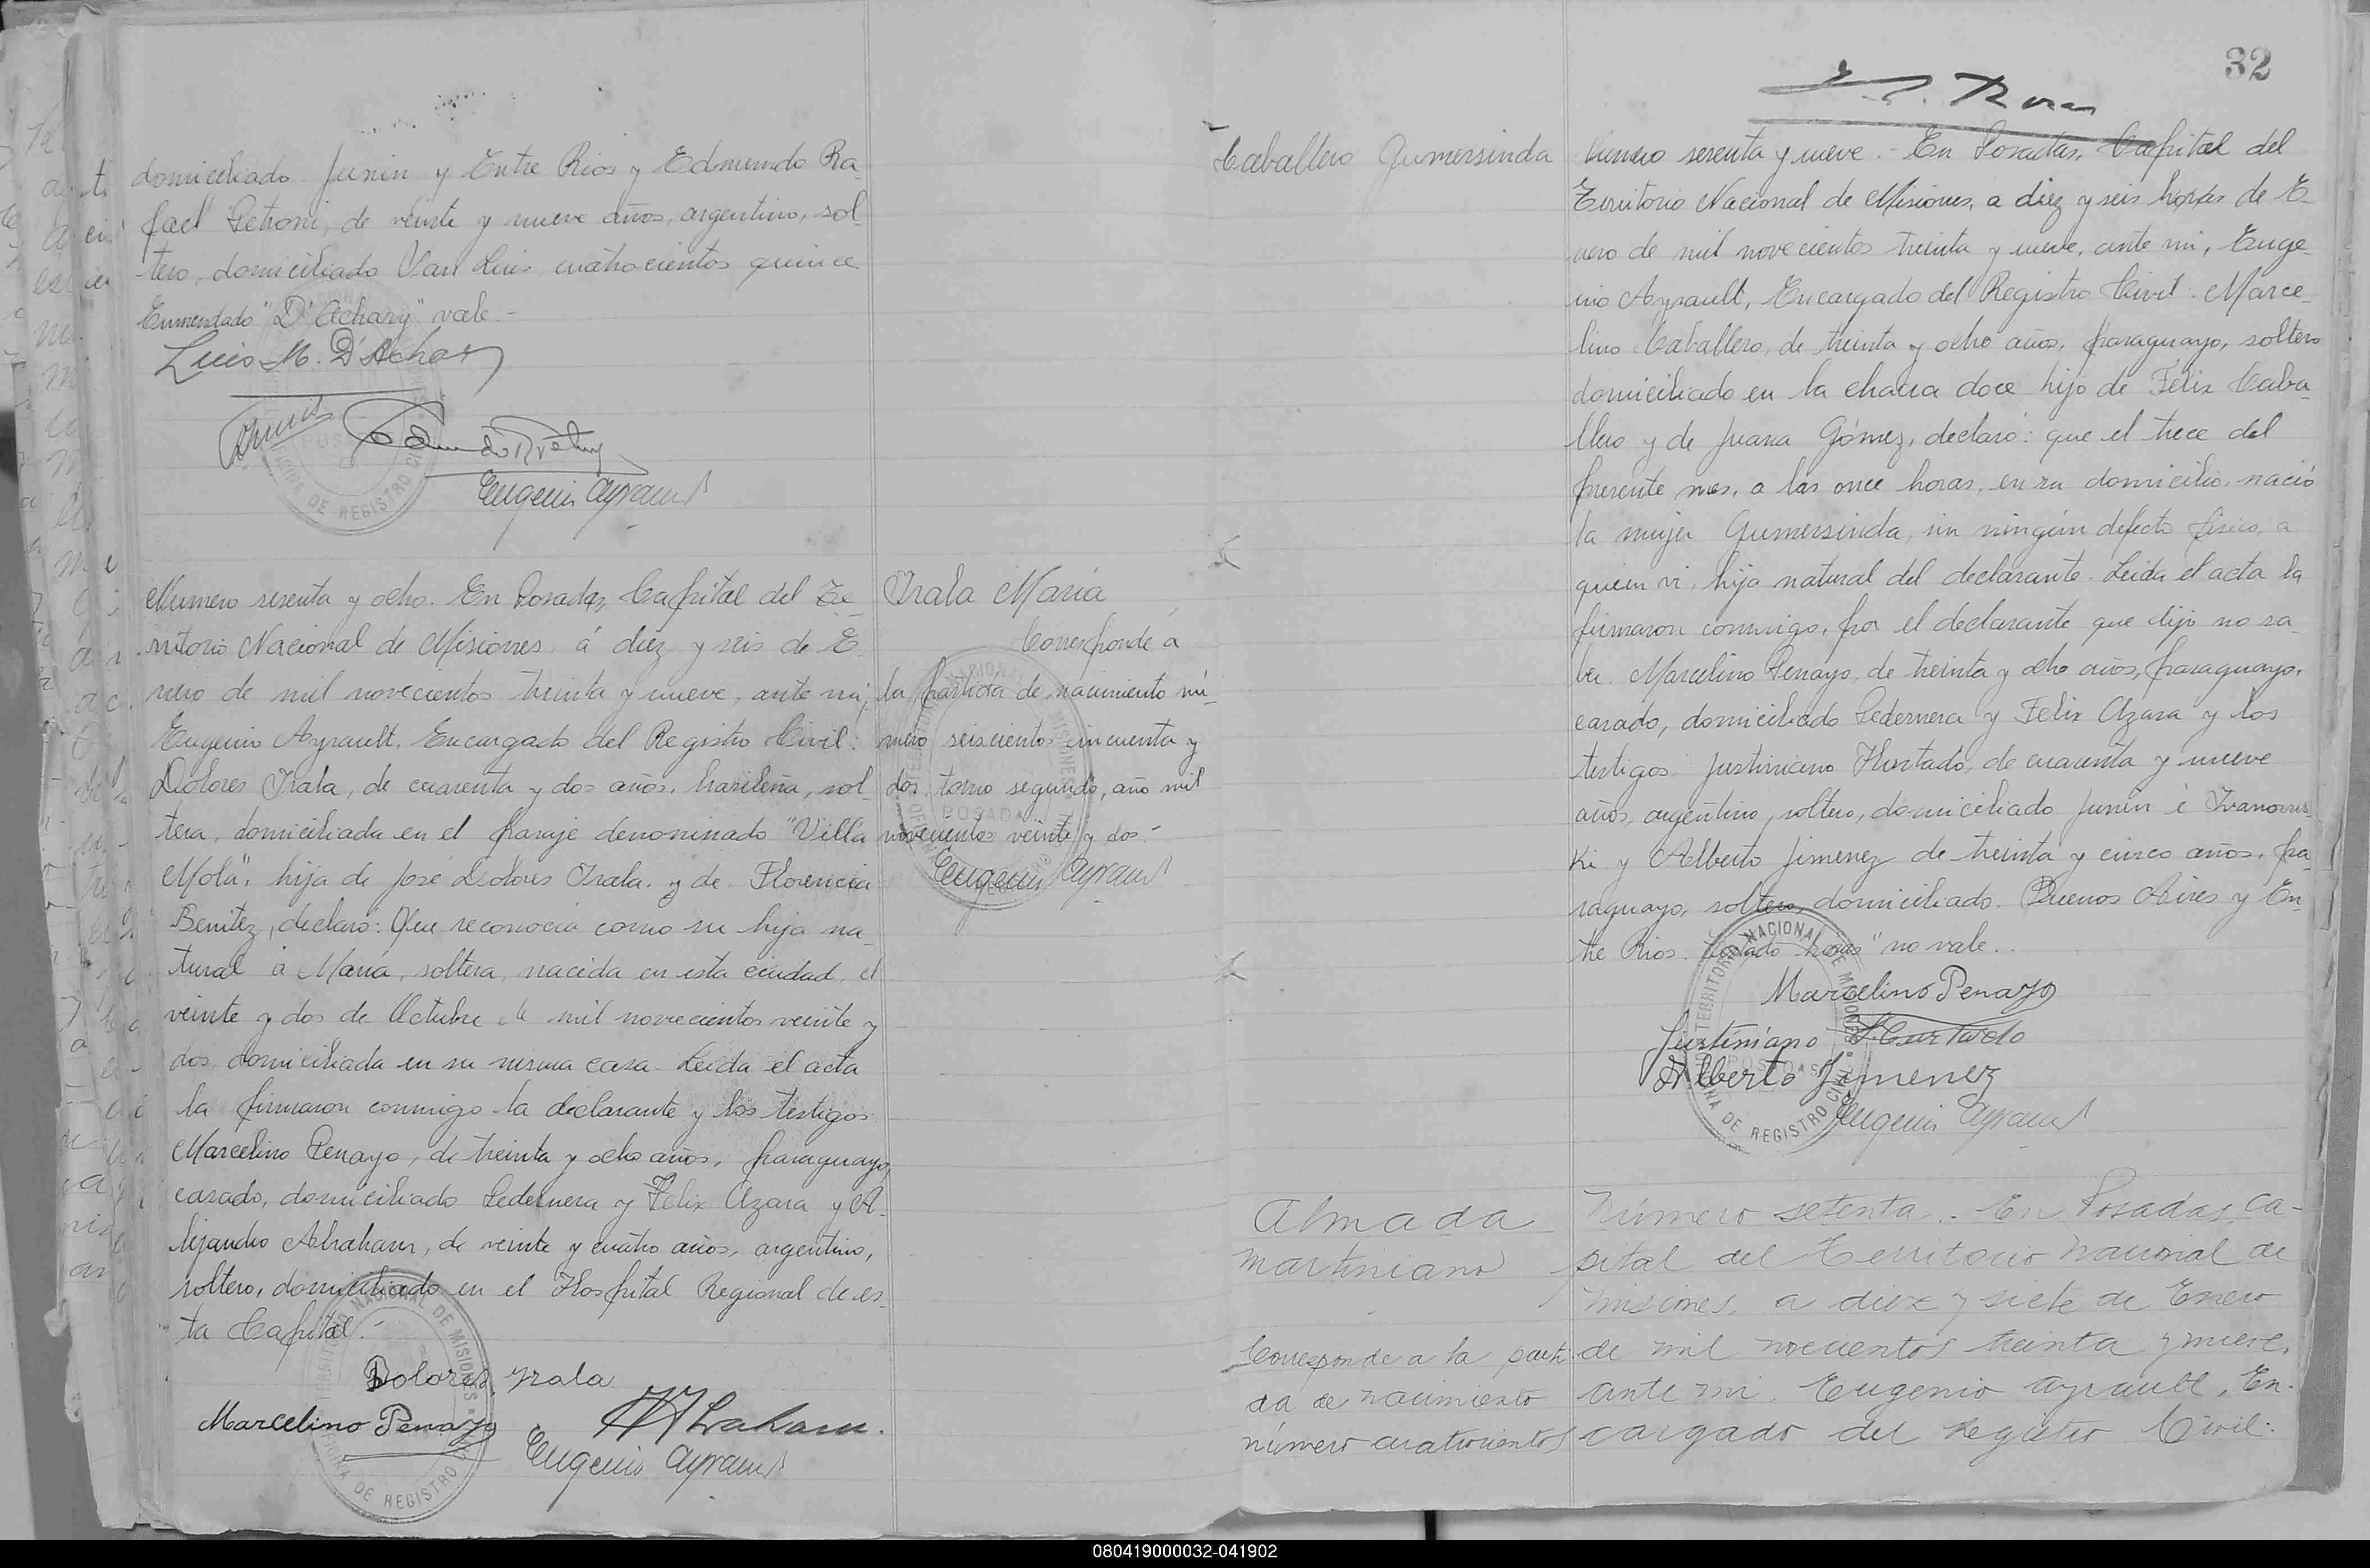 domiciliado Junin y Entre Rios y Edmundo Ra-
fael Petroni, de veinte y nueve años, argentino, sol-
tero, domiciliado San Luis cuatrocientos quince
Enmendado "D'Achary" vale.-
Luis M. D'Achary
Eugenio Ayrault
Numero sesenta y ocho. En Posadas, Capital del Te-
rritorio Nacional de Misiones á diez y seis de E-
nero de mil novecientos treinta y nueve, ante mi,
Eugenio Ayrault, Encargado del Registro Civil:
Dolores Irala, de cuarenta y dos años, brasileña, sol-
tera, domiciliada en el paraje denominado "Villa
Mola", hija de José Dolores Irala y de Florencia
Benitez, declaró: Que reconocia como su hija na-
tural á María, soltera, nacida en esta ciudad, el
veinte y dos de Octubre de mil novecientos veinte y
dos, domiciliada en su misma casa. Leida el acta
la firmaron conmigo la declarante y los testigos
Marcelino Penayo, de treinta y ocho años, paraguayo,
casado, domiciliado Pedernera y Felix Azara y A-
lejandro Abraham, de veinte y cuatro años, argentino,
soltero, domiciliado en el Hospital Regional de es-
ta Capital.-
Dolores Irala
Marcelino Penayo
Abraham
Eugenio Ayrault
Irala María
Corresponde a
la partida de nacimiento nú-
mero seiscientos cincuenta y
dos, tomo segundo, año mil
novecientos veinte y dos.-
Eugenio Ayrault
32
Caballero Gumersinda
Numero sesenta y nueve.- En Posadas, Capital del
Territorio Nacional de Misiones, a diez y seis horas de E-
nero de mil novecientos treinta y nueve, ante mi, Euge-
nio Ayrault, Encargado del Registro Civil: Marce-
lino Caballero, de treinta y ocho años, paraguayo, soltero
domiciliado en la chacra doce hijo de Félix Caba-
llero y de Juana Gómez, declaró: que el trece del
presente mes, a las once horas, en su domicilio, nació
la mujer Gumersinda, sin ningún defecto fisico, a
quien vi, hija natural del declarante. Leida el acta la
firmaron conmigo, por el declarante que dijo no sa-
ber, Marcelino Penayo, de treinta y ocho años, paraguayo,
casado, domiciliado Pedernera y Felix Azara y los
testigos Justiniano Hurtado, de cuarenta y nueve
años, argentino, soltero, domiciliado Junin é Ivanows-
ki y Alberto Jimenez de treinta y cinco años, pa-
raguayo, soltero, domiciliado Buenos Aires y En-
tre Rios. Testado "horas" no vale.-
Marcelino Penayo
Justiniano Hurtado
Alberto Jimenez
Eugenio Ayrault
Almada
Martiniano
Corresponde a la parti-
da de nacimiento
número cuatrocientos
Número setenta.- En Posadas, Ca-
pital del Territorio Nacional de
Misiones, a diez y siete de Enero
de mil novecientos treinta y nueve,
ante mi, Eugenio Ayrault, En-
cargado del Registro Civil:
080419000032-041902